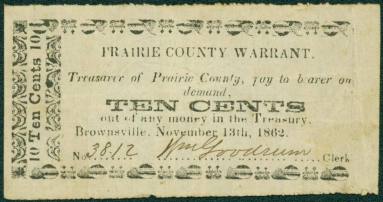 10 Ten Cents 10
PRAIRIE COUNTY WARRANT.
Treasurer of Prairie County, pay to bearer on
demand,
TEN CENTS
out of any money in the Treasury.
Brownsville, November 13th, 1862.
No. 3812 Wm Goodrum Clerk